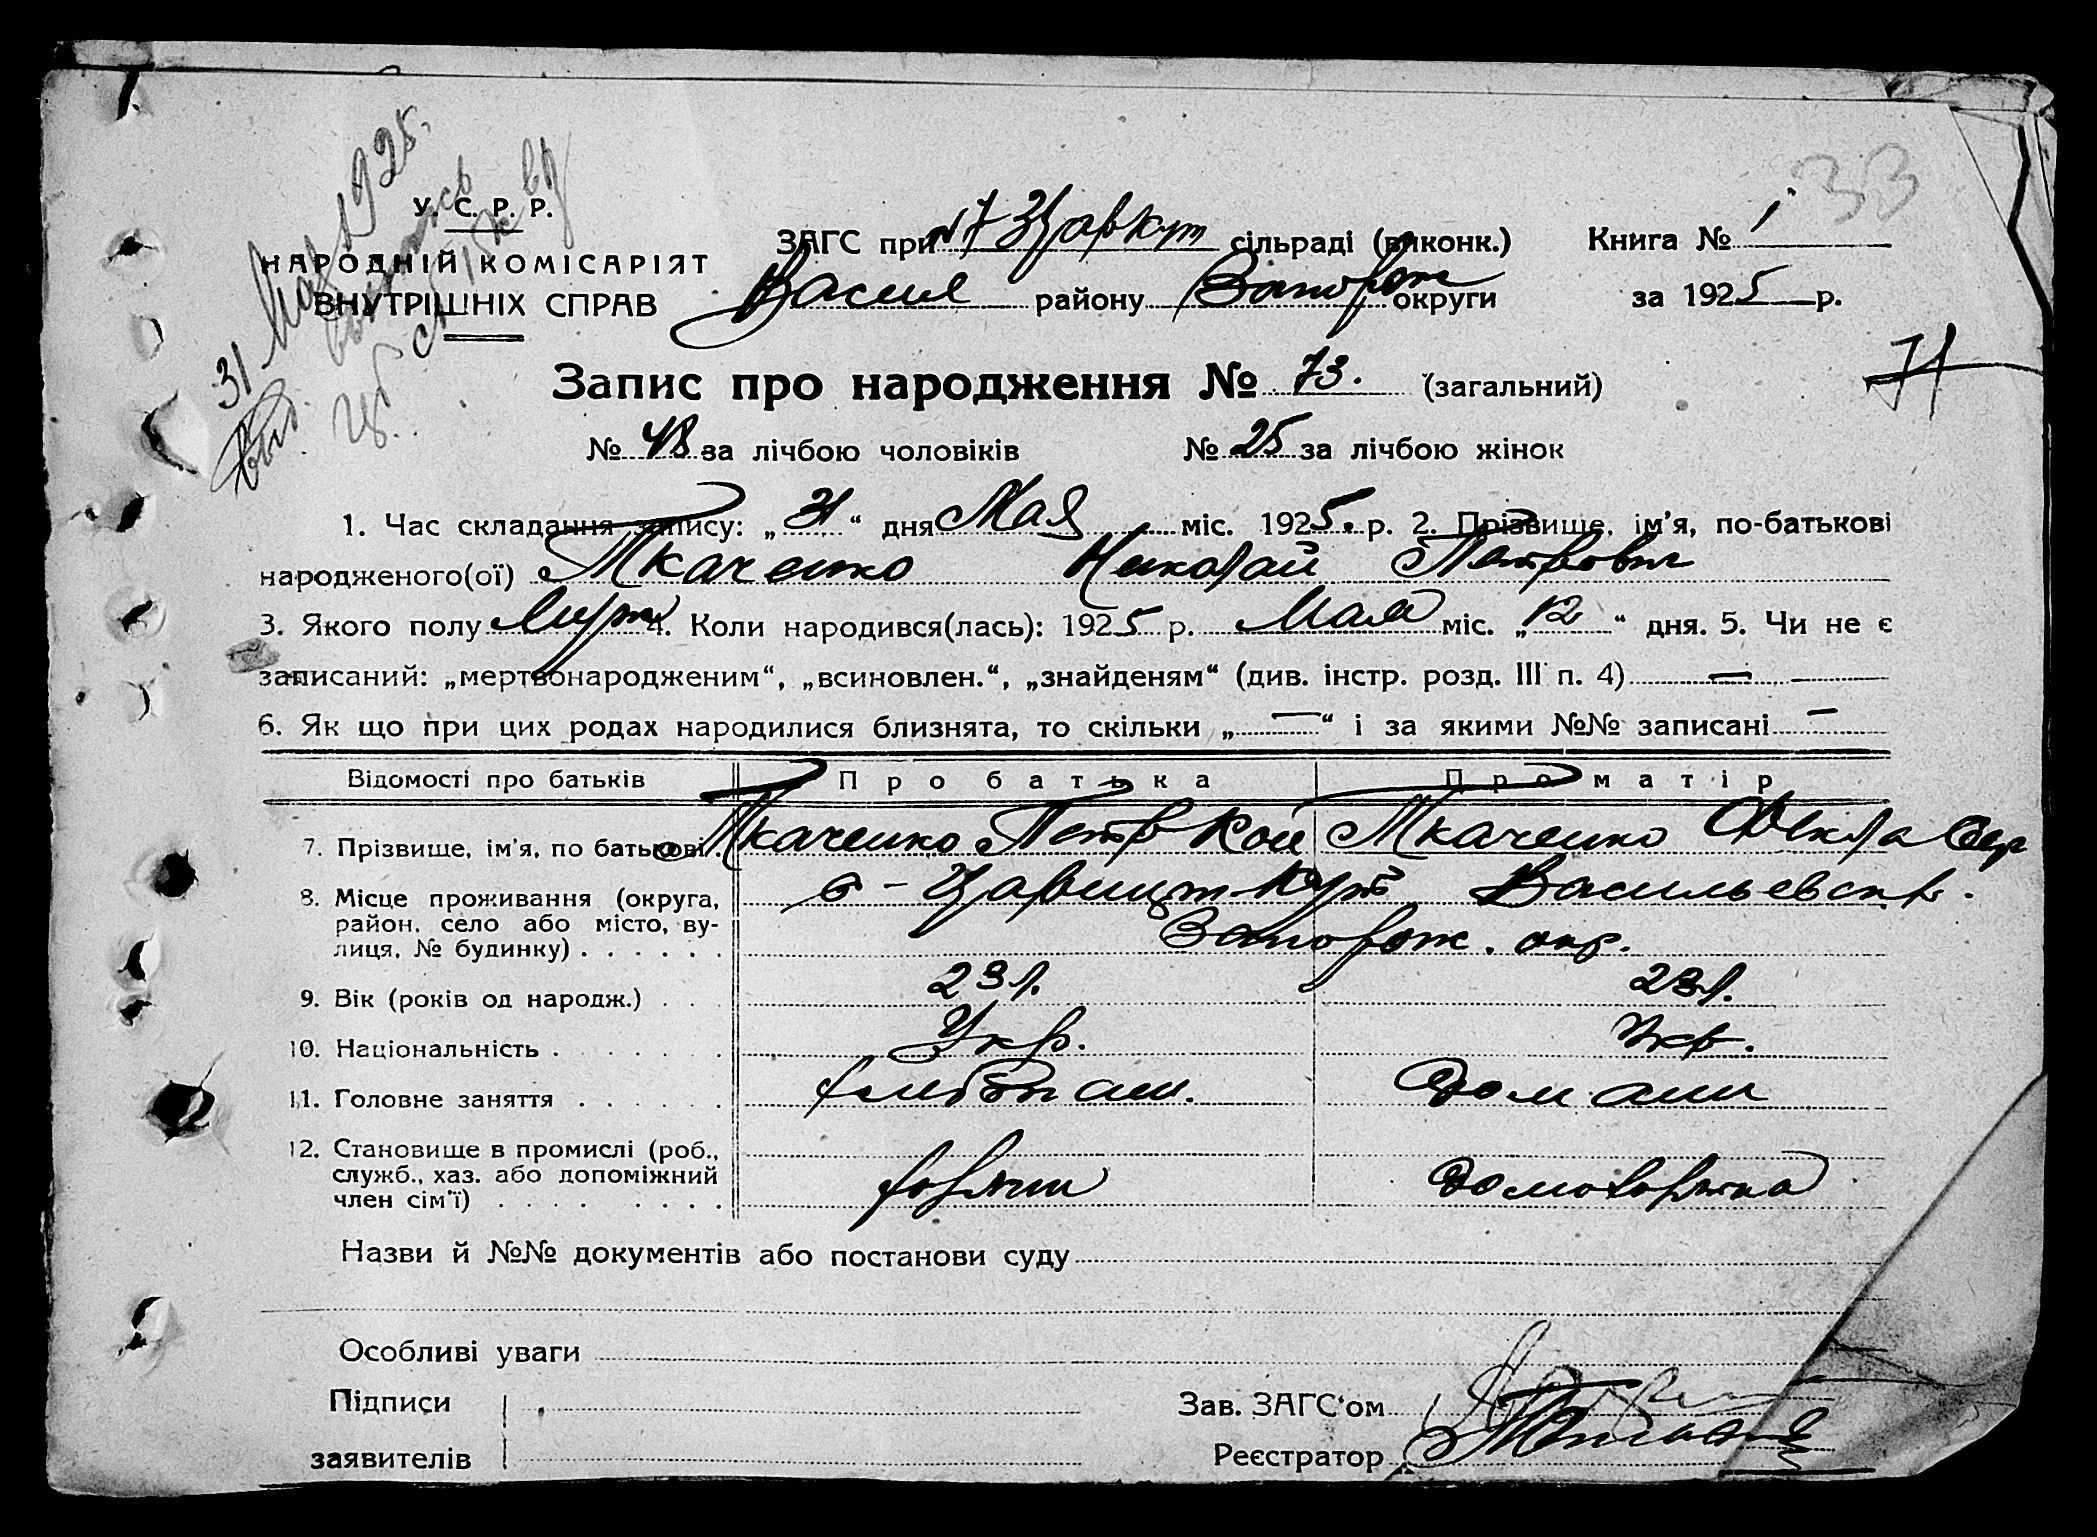 33
31 Мая 1925.
У. С. Р. Р.
НАРОДНІЙ КОМІСАРІЯТ
ВНУТРІШНІХ СПРАВ
ЗАГС при сільраді (виконк.) Книга № 1
Васил району Запорож округи за 1925 р.
71
Запис про народження № 73. (загальний)
№ 48 за лічбою чоловіків № 25 за лічбою жінок
1. Час складання запису: „31“ дня Мая міс. 1925 р. 2. Прізвище, ім’я, по-батькові
народженого(ої) Ткаченко Николай Петрович
3. Якого полу Муж 4. Коли народився(лась): 1925 р. Мая міс. „12“ дня. 5. Чи не є
записаний: „мертвонародженим“, „всиновлен.“, „знайденям“ (див. інстр. розд. III п. 4) —
6. Як що при цих родах народилися близнята, то скільки „—“ і за якими №№ записані —
Відомості про батьків Про батька Про матір
7. Прізвище, ім’я, по батькові. Ткаченко Петр Ткаченко Фекла
8. Місце проживання (округа, Васильевск.
район, село або місто, ву-
лиця, № будинку) . . . . . . Запорож. окр.
9. Вік (років од народж.) . . . 23 л. 23 л.
10. Національність . . . . . . . Укр. Укр.
11. Головне заняття . . . . . . хлебопаш. Домашн
12. Становище в промислі (роб.,
служб., хаз. або допоміжний
член сім’ї) . . . . . . . . Домохозяйка
Назви й №№ документів або постанови суду
Особливі уваги
Підписи
заявителів
Зав. ЗАГС‘ом
Реєстратор